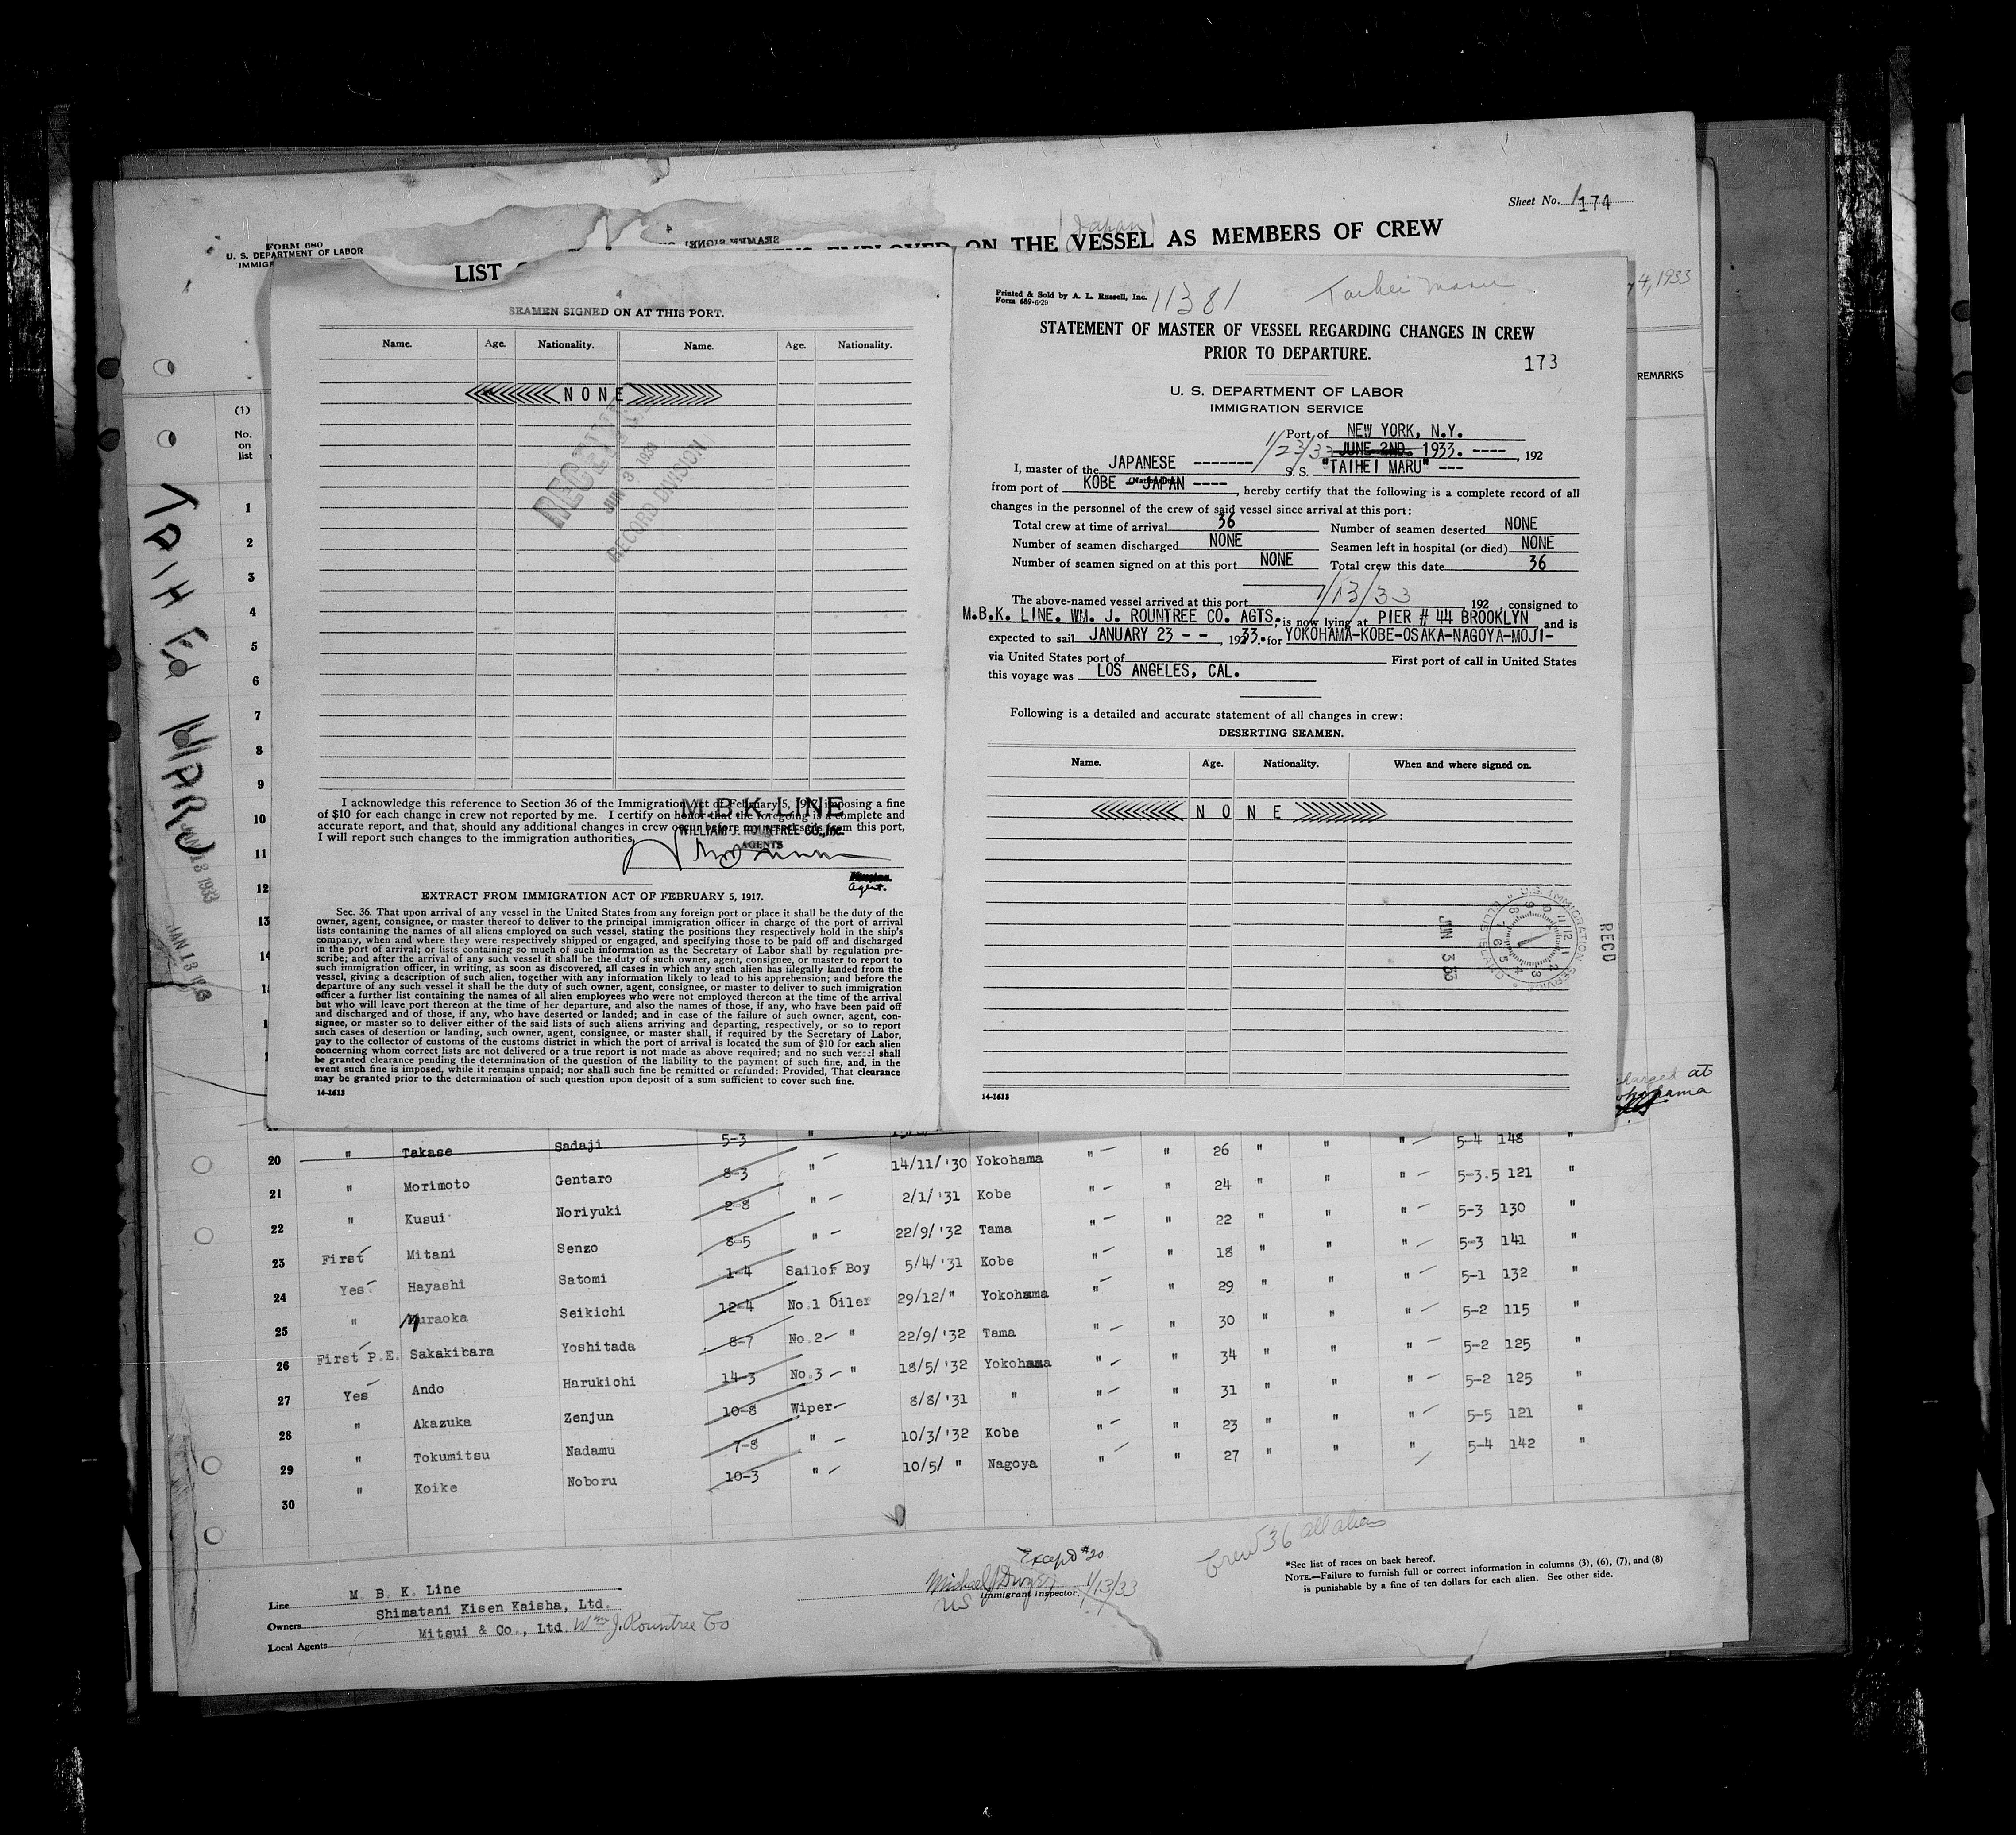 Sheet No. 1 174
FORM 680
U. S. DEPARTMENT OF LABOR
(Japan)
LIST ON THE VESSEL AS MEMBERS OF CREW
4, 1933
REMARKS
(1)
No.
on
list
TAIHEI MARU
JAN 13 1933
4
SEAMEN SIGNED ON AT THIS PORT.
Name. Age. Nationality. Name. Age. Nationality.
NONE
RECEIVED
JUN 3 1933
RECORD DIVISION
I acknowledge this reference to Section 36 of the Immigration Act of February 5, 1917, imposing a fine
of $10 for each change in crew not reported by me. I certify on honor that the foregoing is a complete and
accurate report, and that, should any additional changes in crew occur before my vessel sails from this port,
I will report such changes to the immigration authorities.
M.B.K. LINE
WILLIAM J. ROUNTREE CO., Inc.
AGENTS
Agent.
EXTRACT FROM IMMIGRATION ACT OF FEBRUARY 5, 1917.
Sec. 36. That upon arrival of any vessel in the United States from any foreign port or place it shall be the duty of the
owner, agent, consignee, or master thereof to deliver to the principal immigration officer in charge of the port of arrival
lists containing the names of all aliens employed on such vessel, stating the positions they respectively hold in the ship's
company, when and where they were respectively shipped or engaged, and specifying those to be paid off and discharged
in the port of arrival; or lists containing so much of such information as the Secretary of Labor shall by regulation pre-
scribe; and after the arrival of any such vessel it shall be the duty of such owner, agent, consignee, or master to report to
such immigration officer, in writing, as soon as discovered, all cases in which any such alien has illegally landed from the
vessel, giving a description of such alien, together with any information likely to lead to his apprehension; and before the
departure of any such vessel it shall be the duty of such owner, agent, consignee, or master to deliver to such immigration
officer a further list containing the names of all alien employees who were not employed thereon at the time of the arrival
but who will leave port thereon at the time of her departure, and also the names of those, if any, who have been paid off
and discharged and of those, if any, who have deserted or landed; and in case of the failure of such owner, agent, con-
signee, or master so to deliver either of the said lists of such aliens arriving and departing, respectively, or so to report
such cases of desertion or landing, such owner, agent, consignee, or master shall, if required by the Secretary of Labor,
pay to the collector of customs of the customs district in which the port of arrival is located the sum of $10 for each alien
concerning whom correct lists are not delivered or a true report is not made as above required; and no such vessel shall
be granted clearance pending the determination of the question of the liability to the payment of such fine, and, in the
event such fine is imposed, while it remains unpaid; nor shall such fine be remitted or refunded: Provided, That clearance
may be granted prior to the determination of such question upon deposit of a sum sufficient to cover such fine.
14-1613
Printed & Sold by A. L. Russell, Inc.
Form 689-6-29
11381
Taihei Maru
STATEMENT OF MASTER OF VESSEL REGARDING CHANGES IN CREW
PRIOR TO DEPARTURE.
173
U. S. DEPARTMENT OF LABOR
IMMIGRATION SERVICE
Port of NEW YORK, N.Y.
1/23/33 JUNE 2ND. 1933. ----, 192
I, master of the JAPANESE ------- S. S. "TAIHEI MARU" ---
(Nationality)
from port of KOBE - JAPAN ----, hereby certify that the following is a complete record of all
changes in the personnel of the crew of said vessel since arrival at this port:
Total crew at time of arrival 36 Number of seamen deserted NONE
Number of seamen discharged NONE Seamen left in hospital (or died) NONE
Number of seamen signed on at this port NONE Total crew this date 36
The above-named vessel arrived at this port 1/13/33 192 , consigned to
M.B.K. LINE. WM. J. ROUNTREE CO. AGTS. is now lying at PIER # 44 BROOKLYN and is
expected to sail JANUARY 23 - - , 1933. for YOKOHAMA-KOBE-OSAKA-NAGOYA-MOJI-
via United States port of First port of call in United States
this voyage was LOS ANGELES, CAL.
Following is a detailed and accurate statement of all changes in crew:
DESERTING SEAMEN.
Name. Age. Nationality. When and where signed on.
NONE
U.S. IMMIGRATION SERVICE ELLIS ISLAND
JUN 3 33
REC'D
14-1613
1
2
3
4
5
6
7
8
9
10
11
12
13
at
Yokohama
20 " Takase Sadaji 5-3 "
21 " Morimoto Gentaro 8-3 " 14/11/'30 Yokohama " " 26 " " " 5-4 148 "
22 " Kusui Noriyuki 2-8 " 2/1/'31 Kobe " " 24 " " " 5-3.5 121 "
23 First Mitani Senzo 8-5 " 22/9/'32 Tama " " 22 " " " 5-3 130 "
24 Yes Hayashi Satomi 1-4 Sailor Boy 5/4/'31 Kobe " " 18 " " " 5-3 141 "
25 " Muraoka Seikichi 12-4 No.1 Oiler 29/12/" Yokohama " " 29 " " " 5-1 132 "
26 First P.E. Sakakibara Yoshitada 8-7 No.2 " 22/9/'32 Tama " " 30 " " " 5-2 115 "
27 Yes Ando Harukichi 14-3 No.3 " 18/5/'32 Yokohama " " 34 " " " 5-2 125 "
28 " Akazuka Zenjun 10-8 Wiper 8/8/'31 " " " 31 " " " 5-2 125 "
29 " Tokumitsu Nadamu 7-8 " 10/3/'32 Kobe " " 23 " " " 5-5 121 "
30 " Koike Noboru 10-3 " 10/5/ " Nagoya " " 27 " " " 5-4 142 "
Crew 36 all aliens
Except #20.
Line M. B. K. Line
Owners Shimatani Kisen Kaisha, Ltd.
Local Agents Mitsui & Co., Ltd. Wm J. Rountree Co
Michael J Dwyer 1/13/33
US Immigrant Inspector.
*See list of races on back hereof.
NOTE.—Failure to furnish full or correct information in columns (3), (6), (7), and (8)
is punishable by a fine of ten dollars for each alien. See other side.